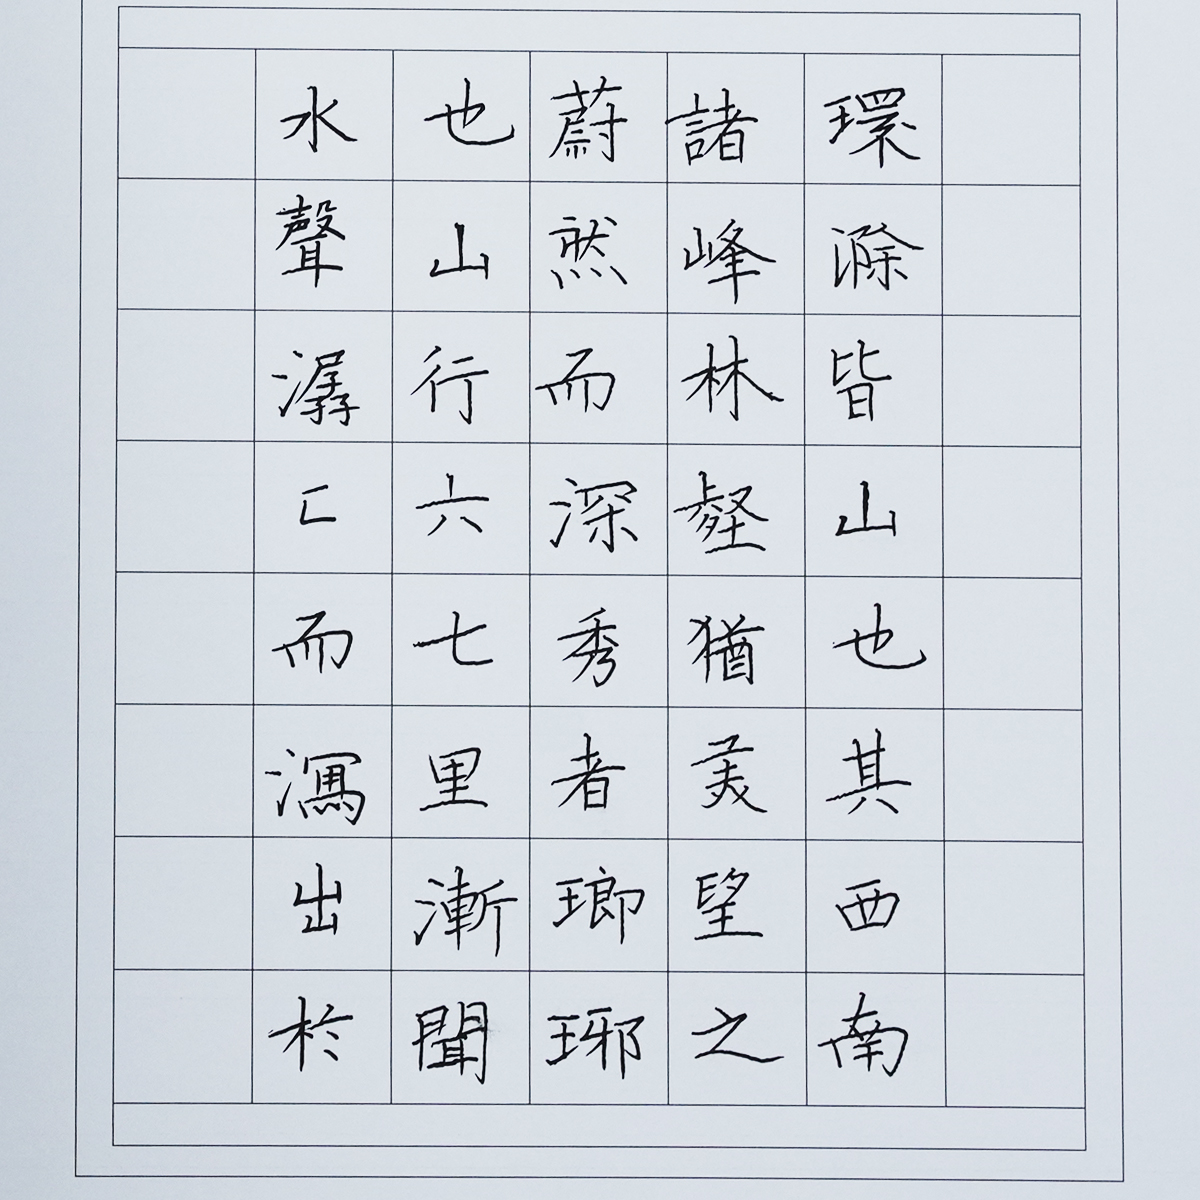 環滁皆山也其西南
諸峰林壑猶美望之
蔚然而深秀者瑯琊
也山行六七里漸聞
水聲潺々而瀉出於